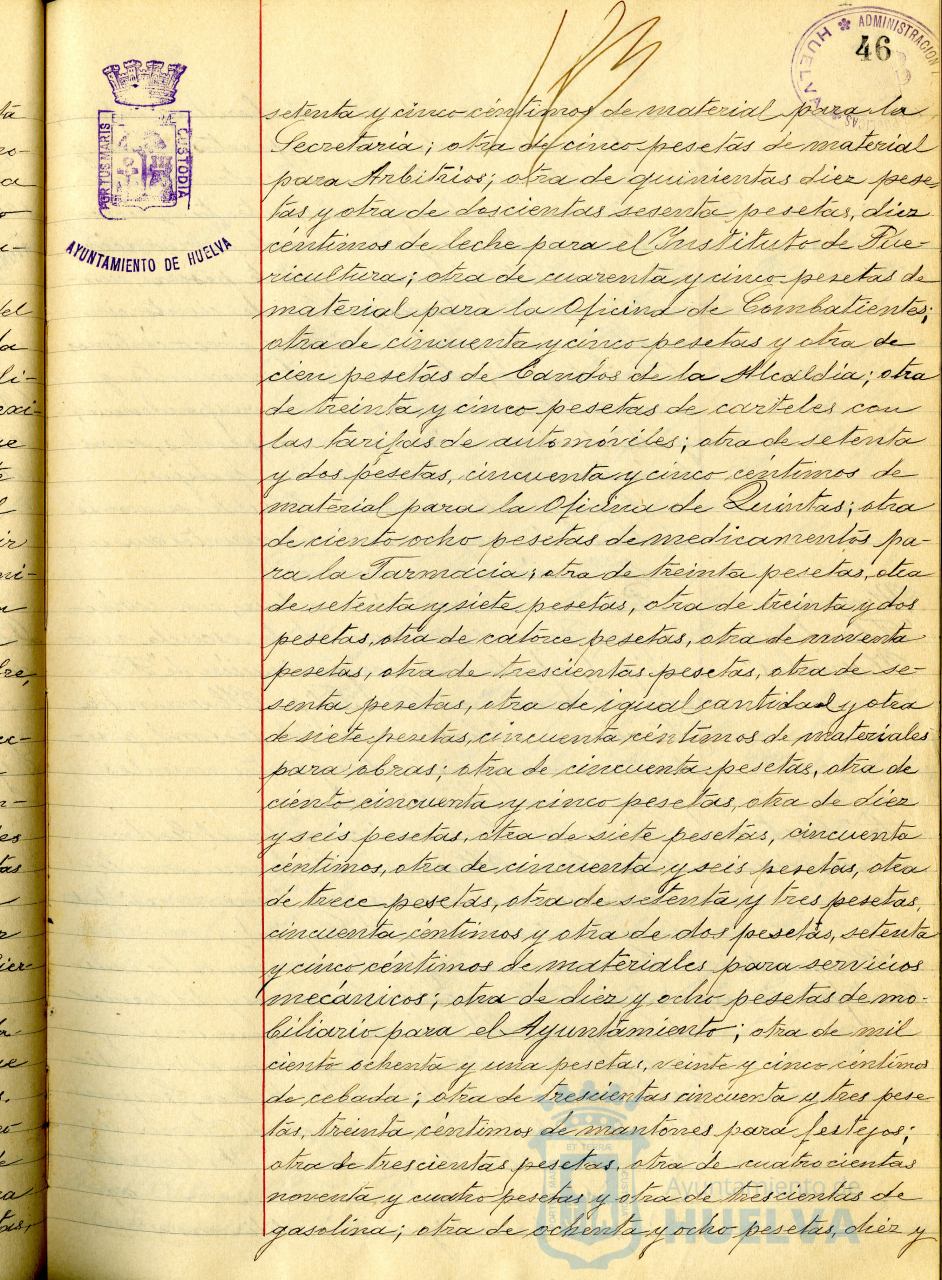 46
ADMINISTRACION
HUELVA
PORTUS MARIS
CUSTODIA
AYUNTAMIENTO DE HUELVA
setenta y cinco céntimos de material para la
Secretaría; otra de cinco pesetas de material
para Arbitrios; otra de quinientas diez pese-
tas y otra de doscientas sesenta pesetas, diez
céntimos de leche para el Instituto de Pue-
ricultura; otra de cuarenta y cinco pesetas de
material para la Oficina de Combatientes;
otra de cincuenta y cinco pesetas y otra de
cien pesetas de bandos de la Alcaldía; otra
de treinta y cinco pesetas de carteles con
las tarifas de automóviles; otra de setenta
y dos pesetas, cincuenta y cinco céntimos de
material para la Oficina de Quintas; otra
de ciento ocho pesetas de medicamentos pa-
ra la Farmacia; otra de treinta pesetas, otra
de setenta y siete pesetas, otra de treinta y dos
pesetas, otra de catorce pesetas, otra de noventa
pesetas, otra de trescientas pesetas, otra de se-
senta pesetas, otra de igual cantidad y otra
de siete pesetas, cincuenta céntimos de materiales
para obras; otra de cincuenta pesetas, otra de
ciento cincuenta y cinco pesetas, otra de diez
y seis pesetas, otra de siete pesetas, cincuenta
céntimos, otra de cincuenta y seis pesetas, otra
de trece pesetas, otra de setenta y tres pesetas,
cincuenta céntimos y otra de dos pesetas, setenta
y cinco céntimos de materiales para servicios
mecánicos; otra de diez y ocho pesetas de mo-
biliario para el Ayuntamiento; otra de mil
ciento ochenta y una pesetas, veinte y cinco céntimos
de cebada; otra de trescientas cincuenta y tres pese-
tas, treinta céntimos de mantones para festejos;
otra de trescientas pesetas, otra de cuatrocientas
noventa y cuatro pesetas y otra de trescientas de
gasolina; otra de ochenta y ocho pesetas, diez y
Ayuntamiento de
HUELVA